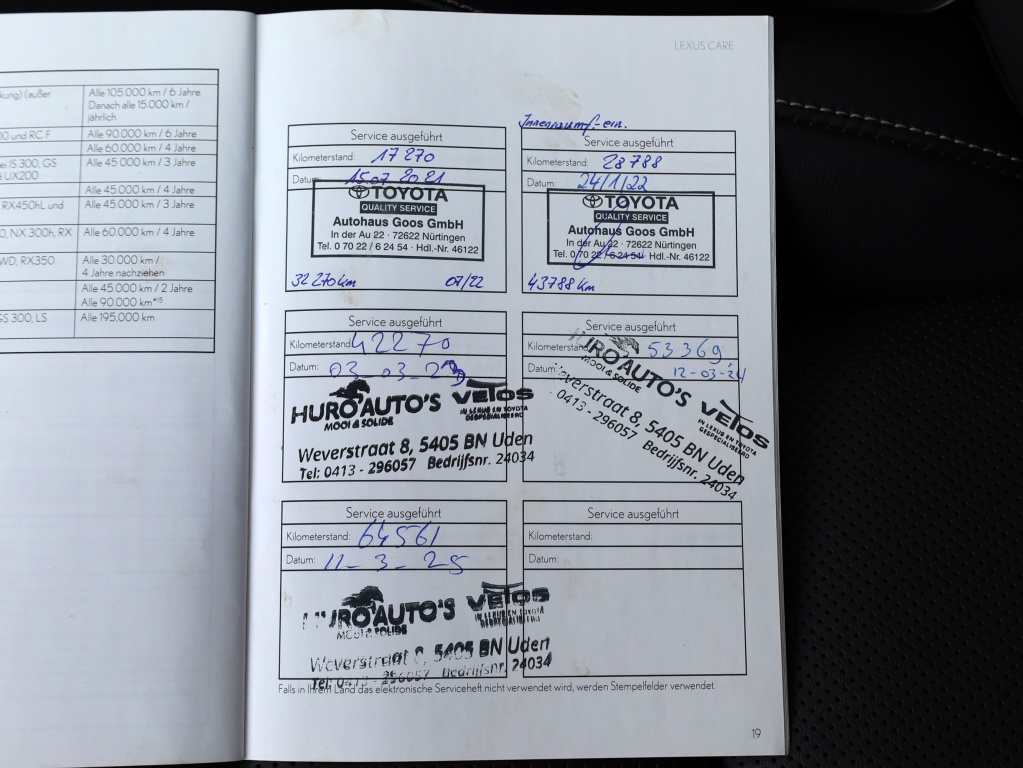 LEXUS CARE
kung) (außer
Alle 105.000 km / 6 Jahre
Danach alle 15.000 km /
jährlich
00 und RC F
Alle 90.000 km / 6 Jahre
Alle 60.000 km / 4 Jahre
ei IS 300, GS
UX200
Alle 45.000 km / 3 Jahre
Alle 45.000 km / 4 Jahre
RX450hL und
Alle 45.000 km / 3 Jahre
0, NX 300h, RX
Alle 60.000 km / 4 Jahre
WD, RX350
Alle 30.000 km /
4 Jahre nachziehen
Alle 45.000 km / 2 Jahre
Alle 90.000 km*15
GS 300, LS
Alle 195.000 km
Service ausgeführt
Kilometerstand: 17 270
Datum: 15.07 2021
TOYOTA
QUALITY SERVICE
Autohaus Goos GmbH
In der Au 22 · 72622 Nürtingen
Tel. 0 70 22 / 6 24 54 · Hdl.-Nr. 46122
32 270 km 07/22
Innenraumf-ein.
Service ausgeführt
Kilometerstand: 28 788
Datum: 24/1/22
TOYOTA
QUALITY SERVICE
Autohaus Goos GmbH
In der Au 22 · 72622 Nürtingen
Tel. 0 70 22 / 6 24 54 · Hdl.-Nr. 46122
43788 km
Service ausgeführt
Kilometerstand: 42270
Datum: 03-03-23
HURO AUTO'S VETOS
MOOI & SOLIDE
IN LEXUS EN TOYOTA
GESPECIALISEERD
Weverstraat 8, 5405 BN Uden
Tel: 0413 - 296057 Bedrijfsnr. 24034
Service ausgeführt
Kilometerstand: 53369
Datum: 12-03-24
HURO AUTO'S VETOS
MOOI & SOLIDE
IN LEXUS EN TOYOTA
GESPECIALISEERD
Weverstraat 8, 5405 BN Uden
0413 - 296057 Bedrijfsnr. 24034
Service ausgeführt
Kilometerstand: 64561
Datum: 11-3-25
HURO AUTO'S VETOS
MOOI & SOLIDE
IN LEXUS EN TOYOTA
GESPECIALISEERD
Weverstraat 8, 5405 BN Uden
Tel: 0413 - 296057 Bedrijfsnr. 24034
Service ausgeführt
Kilometerstand:
Datum:
Falls in Ihrem Land das elektronische Serviceheft nicht verwendet wird, werden Stempelfelder verwendet.
19